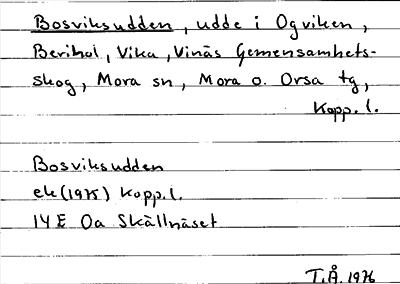 Bosviksudden, udde i Ogviken,
Berihol, Vika, Vinäs Gemensamhets-
skog, Mora sn, Mora o. Orsa tg,
Kopp. l.
Bosviksudden
ek (1975) Kopp. l.
14E 0a Skällnäset
T.Å. 1976